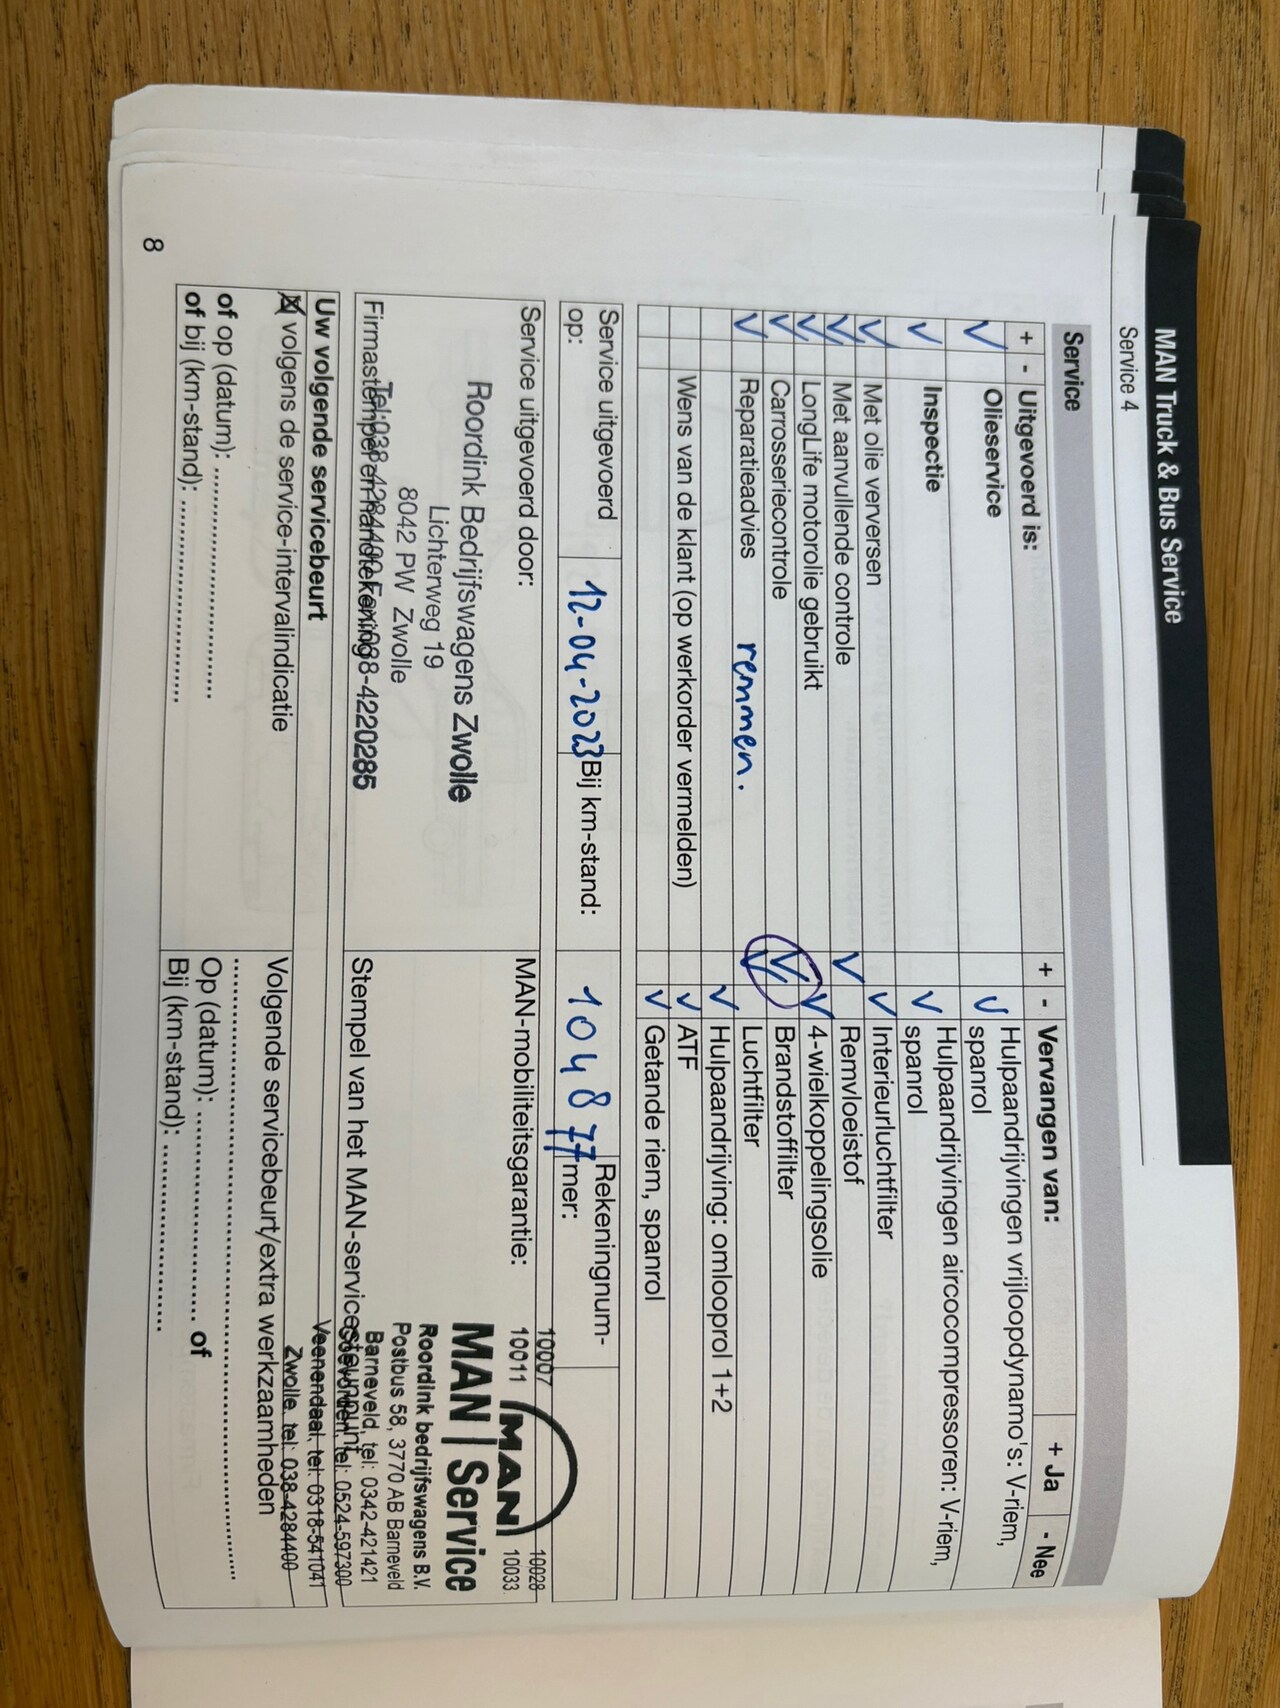 MAN Truck & Bus Service
Service 4
Service
+ - Uitgevoerd is:
Olieservice
Inspectie
Met olie verversen
Met aanvullende controle
LongLife motorolie gebruikt
Carrosseriecontrole
Reparatieadvies remmen.
Wens van de klant (op werkorder vermelden)
+ - Vervangen van: + Ja - Nee
Hulpaandrijvingen vrijloopdynamo's: V-riem,
spanrol
Hulpaandrijvingen aircocompressoren: V-riem,
spanrol
Interieurluchtfilter
Remvloeistof
4-wielkoppelingsolie
Brandstoffilter
Luchtfilter
Hulpaandrijving: omlooprol 1+2
ATF
Getande riem, spanrol
Service uitgevoerd
op:
12-04-2023
Bij km-stand:
104877
Rekeningnum-
mer:
Service uitgevoerd door:
Roordink Bedrijfswagens Zwolle
Lichterweg 19
8042 PW Zwolle
Tel:038-4284400 Fax:038-4220285
Firmastempel en handtekening
MAN-mobiliteitsgarantie:
10007 10028
10011 MAN 10033
MAN | Service
Roordink bedrijfswagens B.V.
Postbus 58, 3770 AB Barneveld
Barneveld, tel: 0342-421421
Coevorden, tel: 0524-597300
Veenendaal, tel: 0318-541041
Zwolle, tel: 038-4284400
Stempel van het MAN-servicesteunpunt
Uw volgende servicebeurt
volgens de service-intervalindicatie
of op (datum): ..............................
of bij (km-stand): ..........................
Volgende servicebeurt/extra werkzaamheden
............................................................
Op (datum): .............................. of
Bij (km-stand): ..........................
8